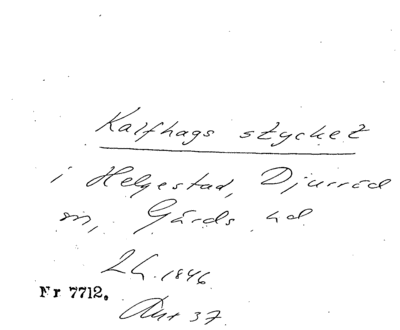 Kalfhags stycket
i Helgestad, Djurröd
sn, Gärds hd
LG. 1846
Nr 7712.
Akt 37